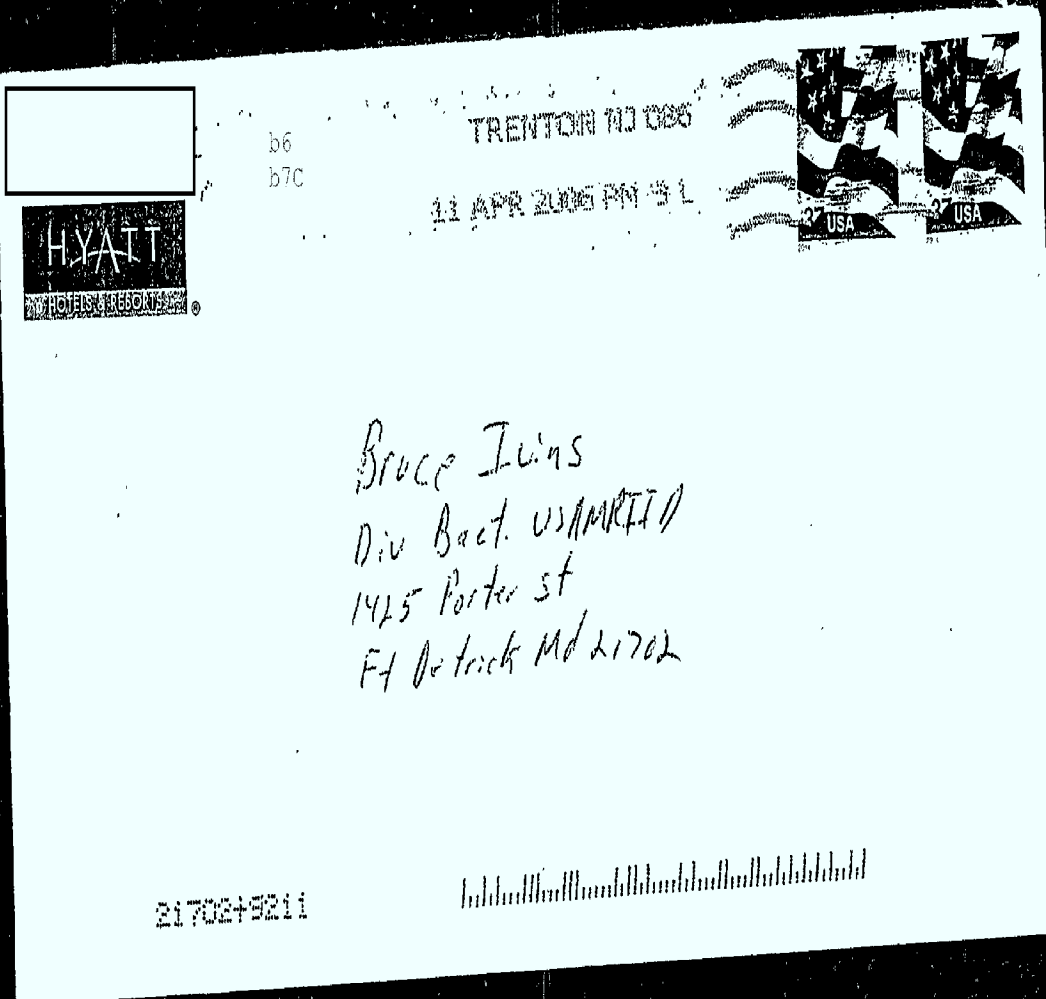 b6
b7C
TRENTON NJ 086
11 APR 2006 PM 9 L
37 USA
37 USA
HYATT
HOTELS & RESORTS®
Bruce Ivins
Div Bact. USAMRIID
1425 Porter st
Ft Detrick Md 21702
21702+9211